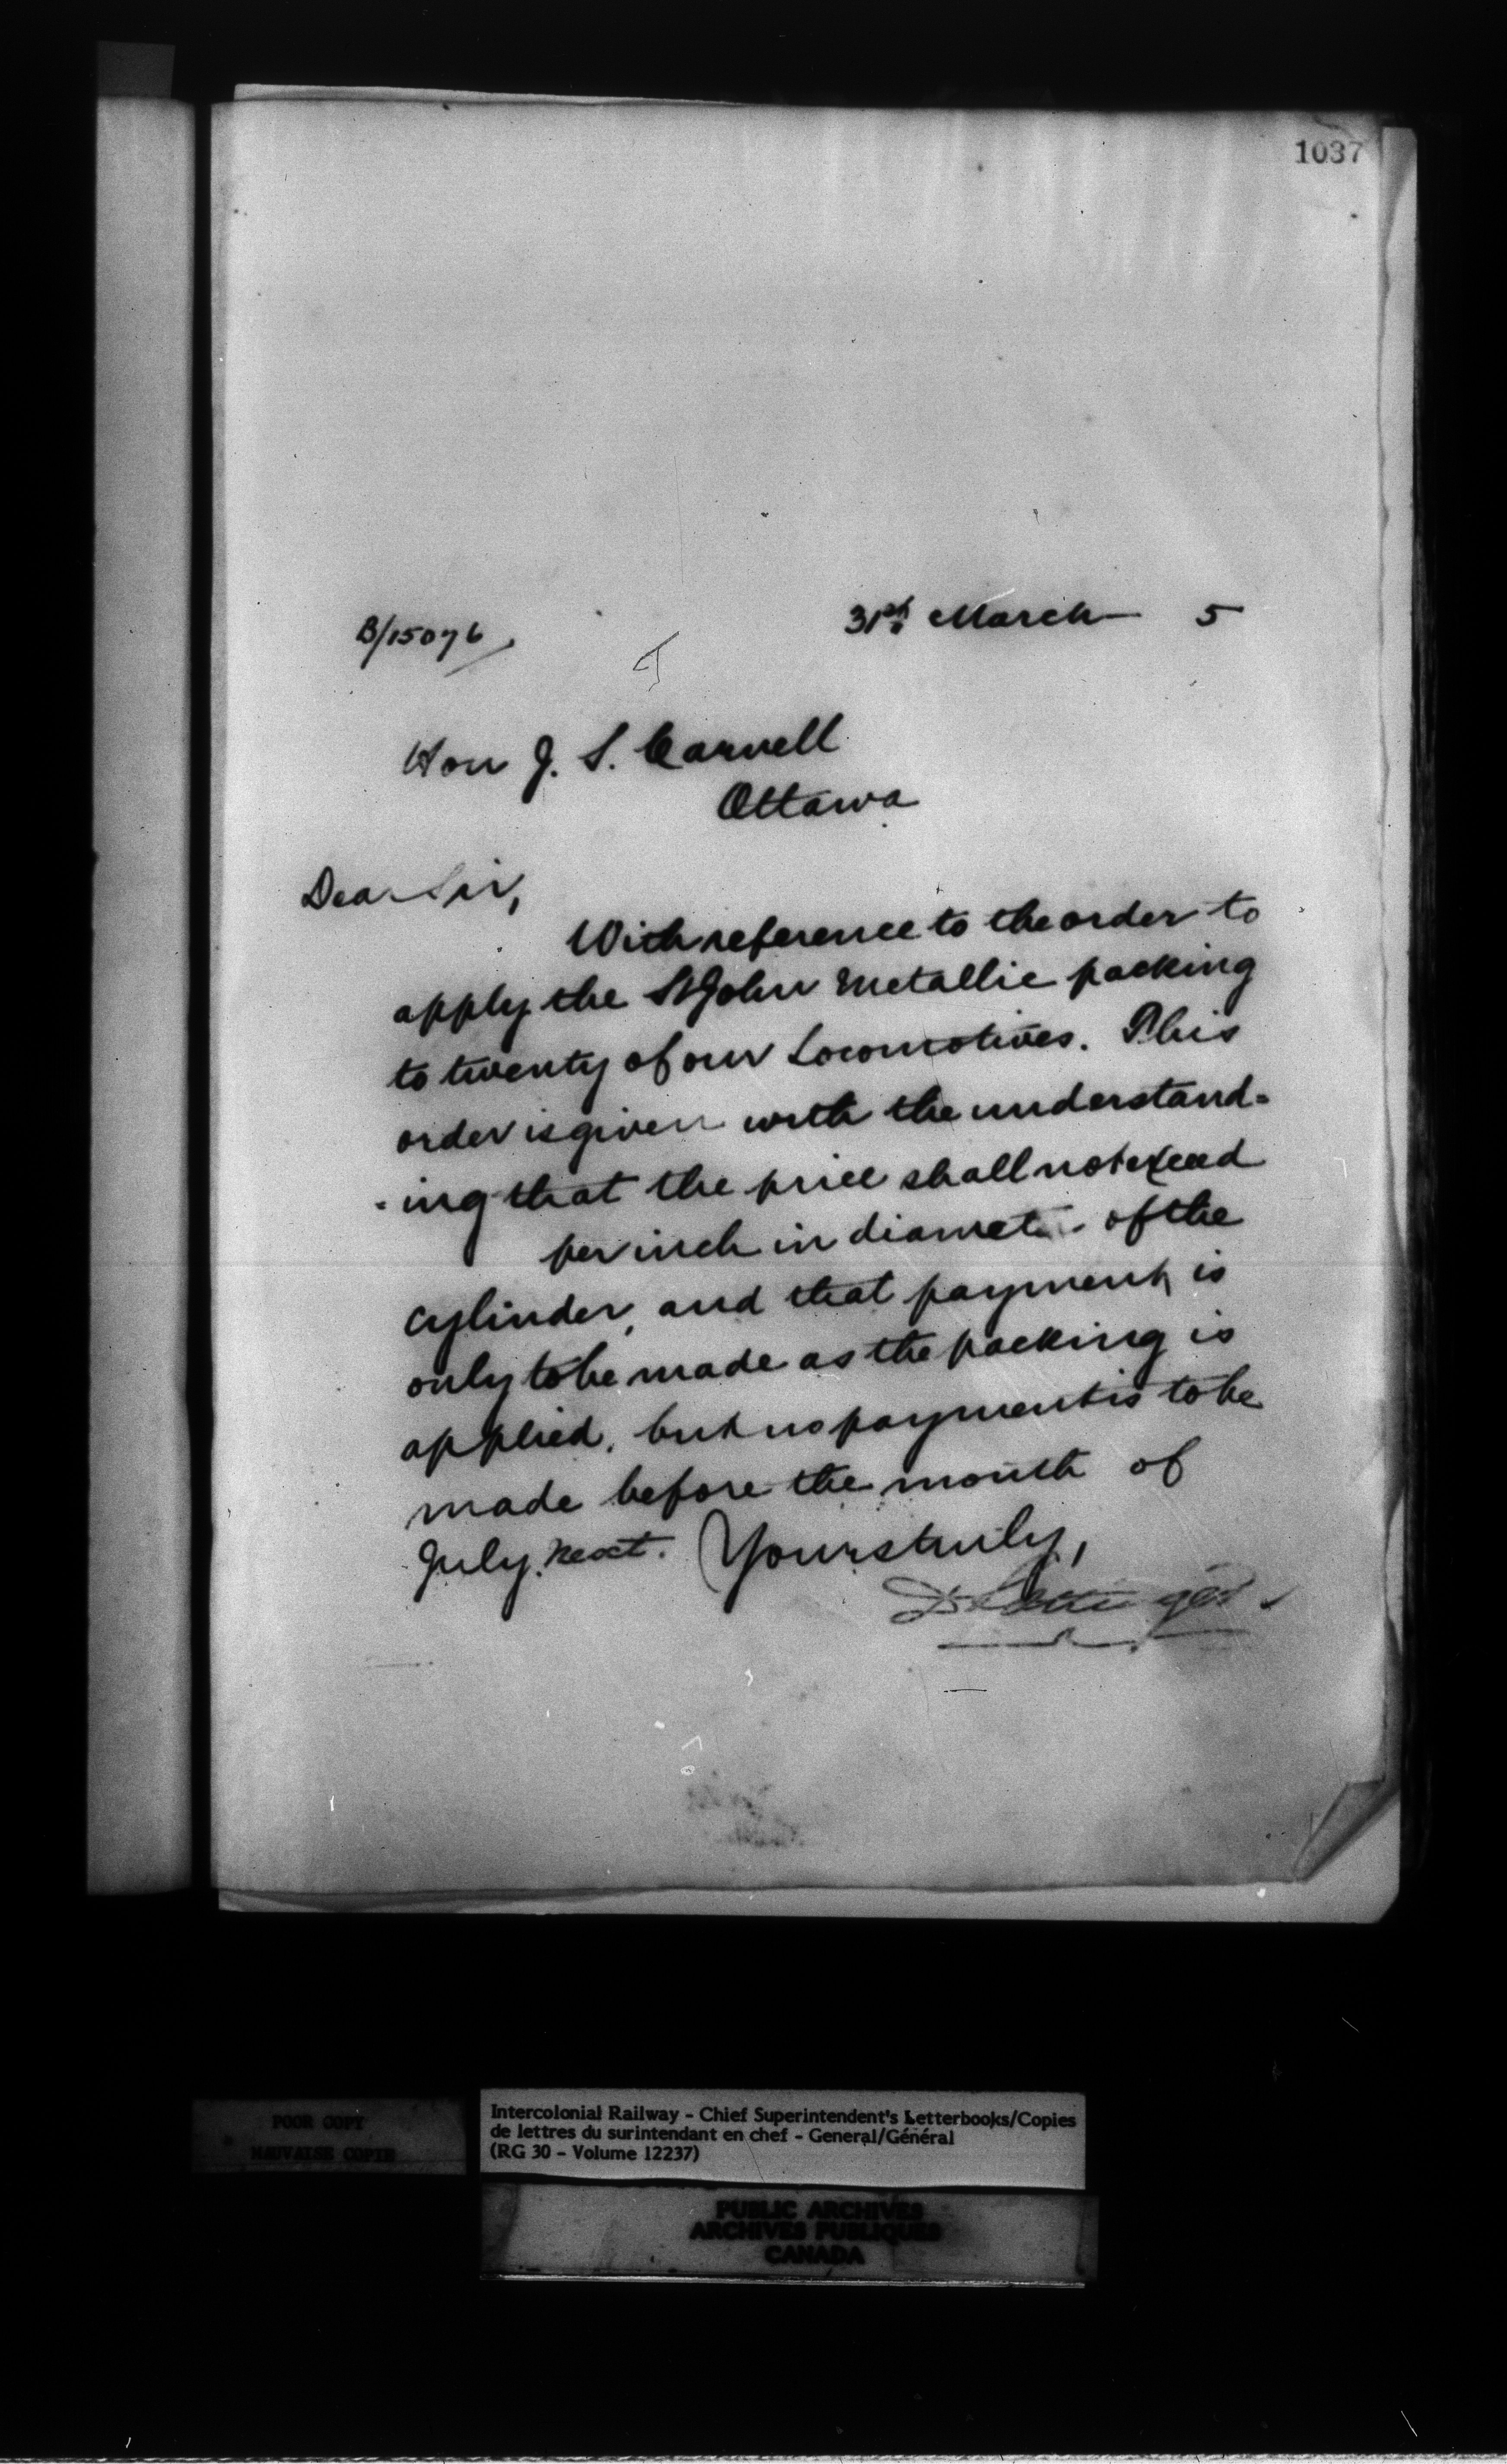 1037
31st March 5
B/15076
Hon J. S. Carvell
Ottawa
Dear Sir,
With reference to the order to
apply the St John Metallic packing
to twenty of our Locomotives. This
order is given with the understand-
-ing that the price shall not exceed
per inch in diameter of the
cylinder, and that payment is
only to be made as the packing is
applied, but no payment is to be
made before the month of
July next. Yours truly,
D Pottinger
POOR COPY
MAUVAISE COPIE
Intercolonial Railway - Chief Superintendent's Letterbooks/Copies
de lettres du surintendant en chef - General/Général
(RG 30 - Volume 12237)
PUBLIC ARCHIVES
ARCHIVES PUBLIQUES
CANADA